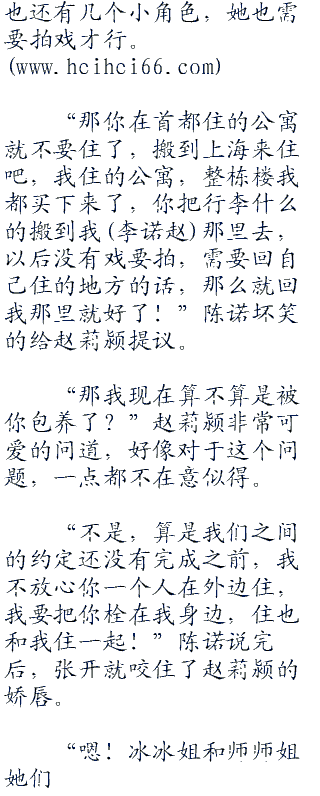 也还有几个小角色，她也需
要拍戏才行。
(www.hcihci66.com)
“那你在首都住的公寓
就不要住了，搬到上海来住
吧，我住的公寓，整栋楼我
都买下来了，你把行李什么
的搬到我(李诺赵)那里去，
以后没有戏要拍，需要回自
己住的地方的话，那么就回
我那里就好了！”陈诺坏笑
的给赵莉颍提议。
“那我现在算不算是被
你包养了？”赵莉颍非常可
爱的问道，好像对于这个问
题，一点都不在意似得。
“不是，算是我们之间
的约定还没有完成之前，我
不放心你一个人在外边住，
我要把你栓在我身边，住也
和我住一起！”陈诺说完
后，张开就咬住了赵莉颍的
娇唇。
“嗯！冰冰姐和师师姐
她们